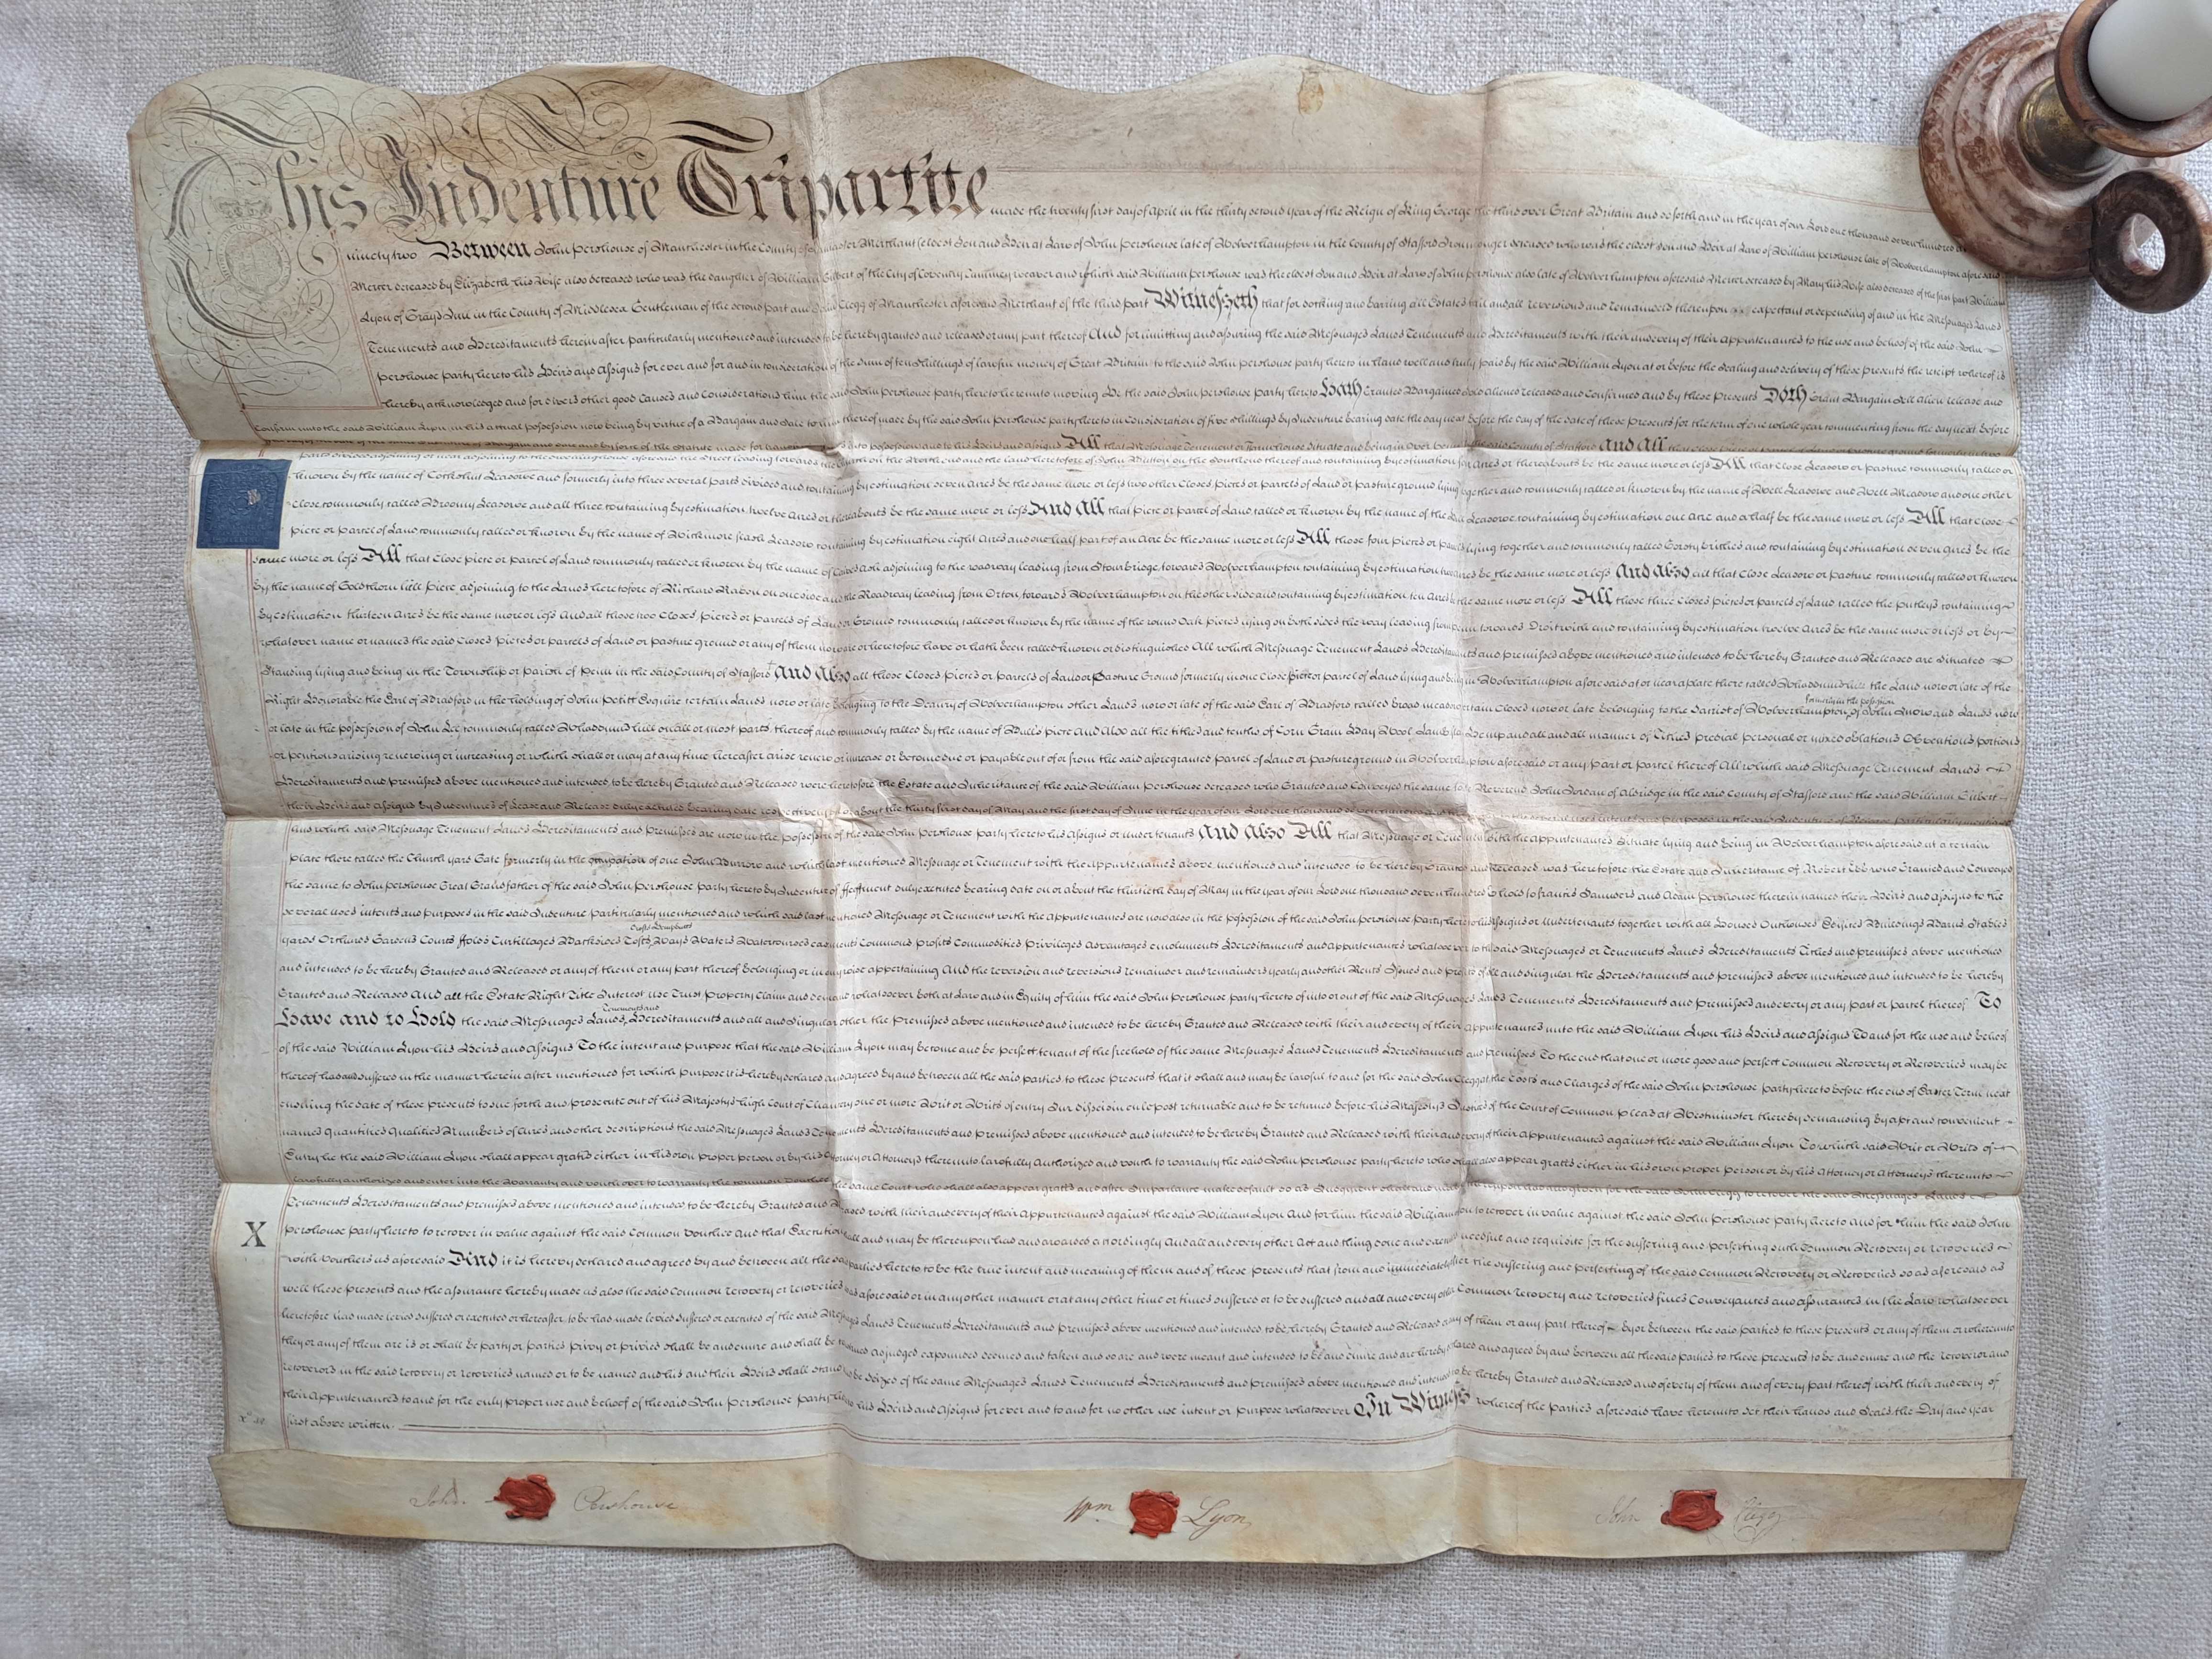 This Indenture Tripartite made the twenty first day of April in the thirty second year of the Reign of King George the third over Great Britain and so forth and in the year of our Lord one thousand seven hundred
ninety two Between John Pershouse of Manchester in the County of Lancaster Merchant eldest Son and Heir at Law of John Pershouse late of Wolverhampton in the County of Stafford Ironmonger deceased who was the eldest Son and Heir at Law of William Pershouse late of Wolverhampton aforesaid
Mercer deceased by Elizabeth his Wife also deceased who was the daughter of William Gilbert of the City of Coventry weaver and which said William Pershouse was the eldest Son and Heir at Law of John Pershouse also late of Wolverhampton aforesaid Mercer deceased by Mary his Wife also deceased of the first part William
Lyon of Grays Inn in the County of Middlesex Gentleman of the second part and John Clegg of Manchester aforesaid Merchant of the third part Witnesseth that for docking and barring all Estates tail and all reversions and remainders thereupon expectant or depending of and in the Messuages Lands
Tenements and Hereditaments herein after particularly mentioned and intended to be hereby granted and released or any part thereof And for limitting and assuring the said Messuages Lands Tenements and Hereditaments with their and every of their appurtenances to the use and behoof of the said John
Pershouse party hereto his Heirs and Assigns for ever and for and in consideration of the Sum of ten Shillings of lawful money of Great Britain to the said John Pershouse party hereto in Hand well and truly paid by the said William Lyon at or before the sealing and delivery of these presents the receipt whereof is
hereby acknowledged and for divers other good Causes and Considerations him the said John Pershouse party hereto hereunto moving He the said John Pershouse party hereto Hath Granted Bargained Sold Aliened released and Confirmed and by these Presents Doth Grant Bargain Sell Alien release and
Confirm unto the said William Lyon in his actual possession now being by virtue of a Bargain and Sale to him thereof made by the said John Pershouse party hereto in Consideration of five Shillings by Indenture bearing date the day next before the day of the date of these Presents for the term of one whole year commencing from the day next before
possession and to his Heirs and Assigns All that Messuage Tenement or Farmhouse situate and being in Over Penn in the said County of Stafford And All
parts divided adjoining or near adjoining to the aforesaid the Street leading towards the Church on the North end and the land heretofore of John on the South end thereof and containing by estimation Acres or thereabouts be the same more or less All that Close Leasowe or Pasture commonly called or
known by the name of Leasowe and formerly into three several parts divided and containing by estimation seven Acres be the same more or less two other Closes pieces or parcels of Land or Pasture ground lying together and commonly called or known by the name of Well Leasowe and Well Meadow and one other
Close commonly called Broomy Leasowe and all three containing by estimation twelve Acres or thereabouts be the same more or less And All that piece or parcel of Land called or known by the name of the Leasowe containing by estimation one Acre and a half be the same more or less All that Close
piece or parcel of Land commonly called or known by the name of Leasow containing by estimation eight Acres and one half part of an Acre be the same more or less All those four pieces or parcels lying together and commonly called and containing by estimation seven Acres be the
same more or less All that Close piece or parcel of Land commonly called or known by the name of adjoining to the roadway leading from Stourbridge towards Wolverhampton containing by estimation Acres be the same more or less And Also all that Close Leasow or Pasture commonly called or known
by the name of Goldthorn Hill Piece adjoining to the Lands heretofore of Richard on one side and the Roadway leading from Orton towards Wolverhampton on the other side and containing by estimation ten Acres be the same more or less All those three Closes pieces or parcels of Land called the containing
by estimation thirteen Acres be the same more or less And all those two Closes pieces or parcels of Land or Ground commonly called or known by the name of the round Oak pieces lying on both sides the way leading from Penn towards Droitwich and containing by estimation twelve Acres be the same more or less or by
whatsoever name or names the said Closes pieces or parcels of Land or Pasture ground or any of them now are or heretofore have or hath been called known or distinguished All which Messuage Tenement Lands Hereditaments and premisses above mentioned and intended to be hereby Granted and Released are situated
standing lying and being in the Township or parish of Penn in the said County of Stafford And Also all those Closes pieces or parcels of Land or Pasture Ground formerly in one Close piece or parcel of Land lying and being in Wolverhampton aforesaid at or near a place there called the Land now or late of the
Right Honorable the Earl of Bradford in the holding of John Petitt Esquire certain Lands now or late belonging to the Deanry of Wolverhampton other Lands now or late of the said Earl of Bradford called broad meadow certain Closes now or late belonging to the of Wolverhampton formerly in the possession of John and Lands now
or late in the possession of John Lee commonly called hill on all or most parts thereof and commonly called by the name of Bulls piece And Also all the tithes and tenths of Corn Grain Hay Wool Lamb Hemp and all and all manner of Tithes predial personal or mixed oblations Obventions portions
or pentions arising renewing or increasing or which shall or may at any time hereafter arise renew or increase or become due or payable out of or from the said aforegranted parcel of Land or Pasture ground in Wolverhampton aforesaid or any part or parcel thereof All which said Messuage Tenement Lands
Hereditaments and premisses above mentioned and intended to be hereby Granted and Released were heretofore the Estate and Inheritance of the said William Pershouse deceased who Granted and Conveyed the same to Reverend John of Aldridge in the said County of Stafford and the said William Gilbert
their Heirs and Assigns by Indentures of Lease and Release duly executed bearing date respectively on or about the thirty first day of May and the first day of June in the year of our Lord one thousand seven hundred
And which said Messuage Tenement Lands Hereditaments and Premisses are now in the possession of the said John Pershouse party hereto his Assigns or undertenants And Also All that Messuage or Tenement with the appurtenances situate lying and being in Wolverhampton aforesaid at a certain
place there called the Church yard Gate formerly in the occupation of one John and which last mentioned Messuage or Tenement with the appurtenances above mentioned and intended to be hereby Granted and Released was heretofore the Estate and Inheritance of Robert who Granted and Conveyed
the same to John Pershouse Great Grandfather of the said John Pershouse party hereto by Indenture of ffeoffment duly executed bearing date on or about the thirtieth day of May in the year of our Lord one thousand seven hundred to hold to Francis and Adam Pershouse therein named their Heirs and Assigns to the
several uses intents and purposes in the said Indenture particularly mentioned and which said last mentioned Messuage or Tenement with the appurtenances are now also in the possession of the said John Pershouse party hereto his Assigns or Undertenants together with all Houses Outhouses Edifices Buildings Barns Stables
yards Orchards Gardens Courts ffolds Curtillages Backsides Tofts Ways Waters Watercourses easements Commons profits Commodities Privileges Advantages emoluments Hereditaments and appurtenances whatsoever to the said Messuages or Tenements Lands Hereditaments Tithes and premisses above mentioned
and intended to be hereby Granted and Released or any of them or any part thereof belonging or in any wise appertaining And the reversion and reversions remainder and remainders yearly and other Rents Issues and profits of all and singular the Hereditaments and premisses above mentioned and intended to be hereby
Granted and Released And all the Estate Right Title Interest use Trust Property Claim and demand whatsoever both at Law and in Equity of him the said John Pershouse party hereto of into or out of the said Messuages Lands Tenements Hereditaments and Premisses and every or any part or parcel thereof To
Have and to Hold the said Messuages Lands Tenements and Hereditaments and all and Singular other the Premisses above mentioned and intended to be hereby Granted and Released with their and every of their appurtenances unto the said William Lyon his Heirs and Assigns To and for the use and behoof
of the said William Lyon his Heirs and Assigns To the intent and purpose that the said William Lyon may become and be perfect tenant of the freehold of the same Messuages Lands Tenements Hereditaments and premisses To the end that one or more good and perfect Common Recovery or Recoveries may be
thereof had and suffered in the manner herein after mentioned for which purpose it is hereby declared and agreed by and between all the said parties to these Presents that it shall and may be lawful to and for the said John Clegg at the Costs and Charges of the said John Pershouse party hereto before the end of Easter Term next
ensuing the date of these presents to sue forth and prosecute out of his Majestys high Court of Chancery one or more Writ or Writs of entry Sur disseisin en le post returnable and to be returned before his Majestys Justices of the Court of Common pleas at Westminster thereby demanding by apt and convenient
names Quantities Qualities Numbers of Acres and other descriptions the said Messuages Lands Tenements Hereditaments and premisses above mentioned and intended to be hereby Granted and Released with their and every of their appurtenances against the said William Lyon To which said Writ or Writs of
Entry he the said William Lyon shall appear gratis either in his own proper person or by his Attorney or Attorneys thereunto lawfully Authorized and vouch to warranty the said John Pershouse party hereto who shall also appear gratis either in his own proper person or by his Attorney or Attorneys thereunto
lawfully authorized and enter into the Warranty and vouch over to warranty the common vouchee the same Court who shall also appear gratis and after imparlance make default so as Judgment shall and may be given for the said John Clegg to recover the said Messuages Lands
Tenements Hereditaments and premisses above mentioned and intended to be hereby Granted and Released with their and every of their Appurtenances against the said William Lyon And for him the said William Lyon to recover in value against the said John Pershouse party hereto and for him the said John
X
Pershouse party hereto to recover in value against the said Common Vouchee And that Execution shall and may be thereupon had and awarded accordingly And all and every other Act and thing done and executed needful and requisite for the suffering and perfecting such Common Recovery or recoveries
with Vouchers as aforesaid And it is hereby declared and agreed by and between all the said parties hereto to be the true intent and meaning of them and of these Presents that from and immediately after the suffering and perfecting of the said Common Recovery or Recoveries so as aforesaid as
well these presents and the assurance hereby made as also the said Common recovery or recoveries as aforesaid or in any other manner or at any other time or times suffered or to be suffered and all and every other Common recovery and recoveries fines Conveyances and assurances in the Law whatsoever
heretofore had made levied suffered or executed or hereafter to be had made levied suffered or executed of the said Messuages Lands Tenements Hereditaments and premisses above mentioned and intended to be hereby Granted and Released any of them or any part thereof by or between the said parties to these presents or any of them or whereunto
they or any of them are is or shall be party or parties privy or privies shall be and enure and shall be adjudged expounded deemed and taken and so are and were meant and intended to be and enure and are hereby declared and agreed by and between all the said parties to these presents to be and enure and the recoveror and
recoverors in the said recovery or recoveries named or to be named and his and their Heirs shall stand and be seized of the same Messuages Lands Tenements Hereditaments and premisses above mentioned and intended to be hereby Granted and Released and of every of them and of every part thereof with their and every of
their Appurtenances to and for the only proper use and behoof of the said John Pershouse party hereto his Heirs and Assigns for ever and to and for no other use intent or purpose whatsoever In Witness whereof the parties aforesaid have hereunto set their hands and Seals the Day and year
first above written.
John Pershouse
Wm. Lyon
John Clegg